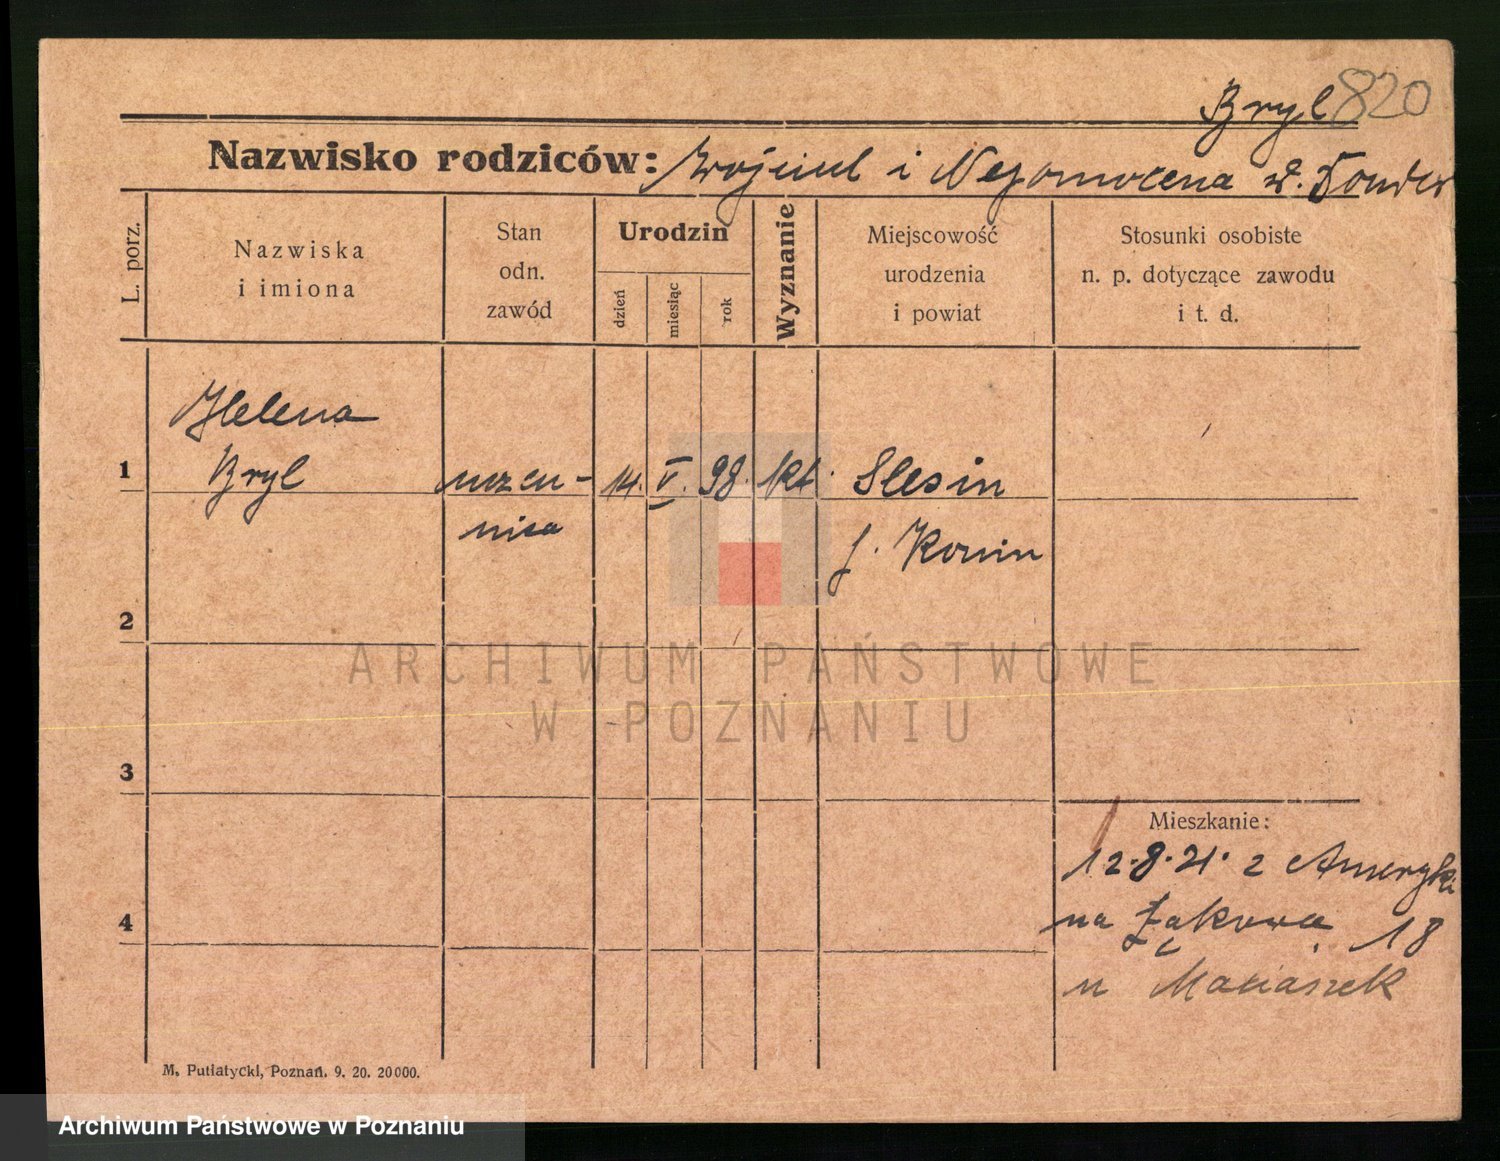 Bryl 820
Nazwisko rodziców: Wojciech i Nepomocena
L. porz.
Nazwiska
i imiona
Stan
odn.
zawód
Urodzin
dzień
miesiąc
rok
Wyznanie
Miejscowość
urodzenia
i powiat
Stosunki osobiste
n. p. dotyczące zawodu
i t. d.
Helena
1 Bryl uczen- 14. V. 98. kt. Slesin
nica
p. Konin
2
3
Mieszkanie:
12.8.21. z Ameryki
4
na Żąkowa 18
u Maciaszek
M. Putiatycki, Poznań. 9. 20. 20000.
ARCHIWUM PAŃSTWOWE
W POZNANIU
Archiwum Państwowe w Poznaniu